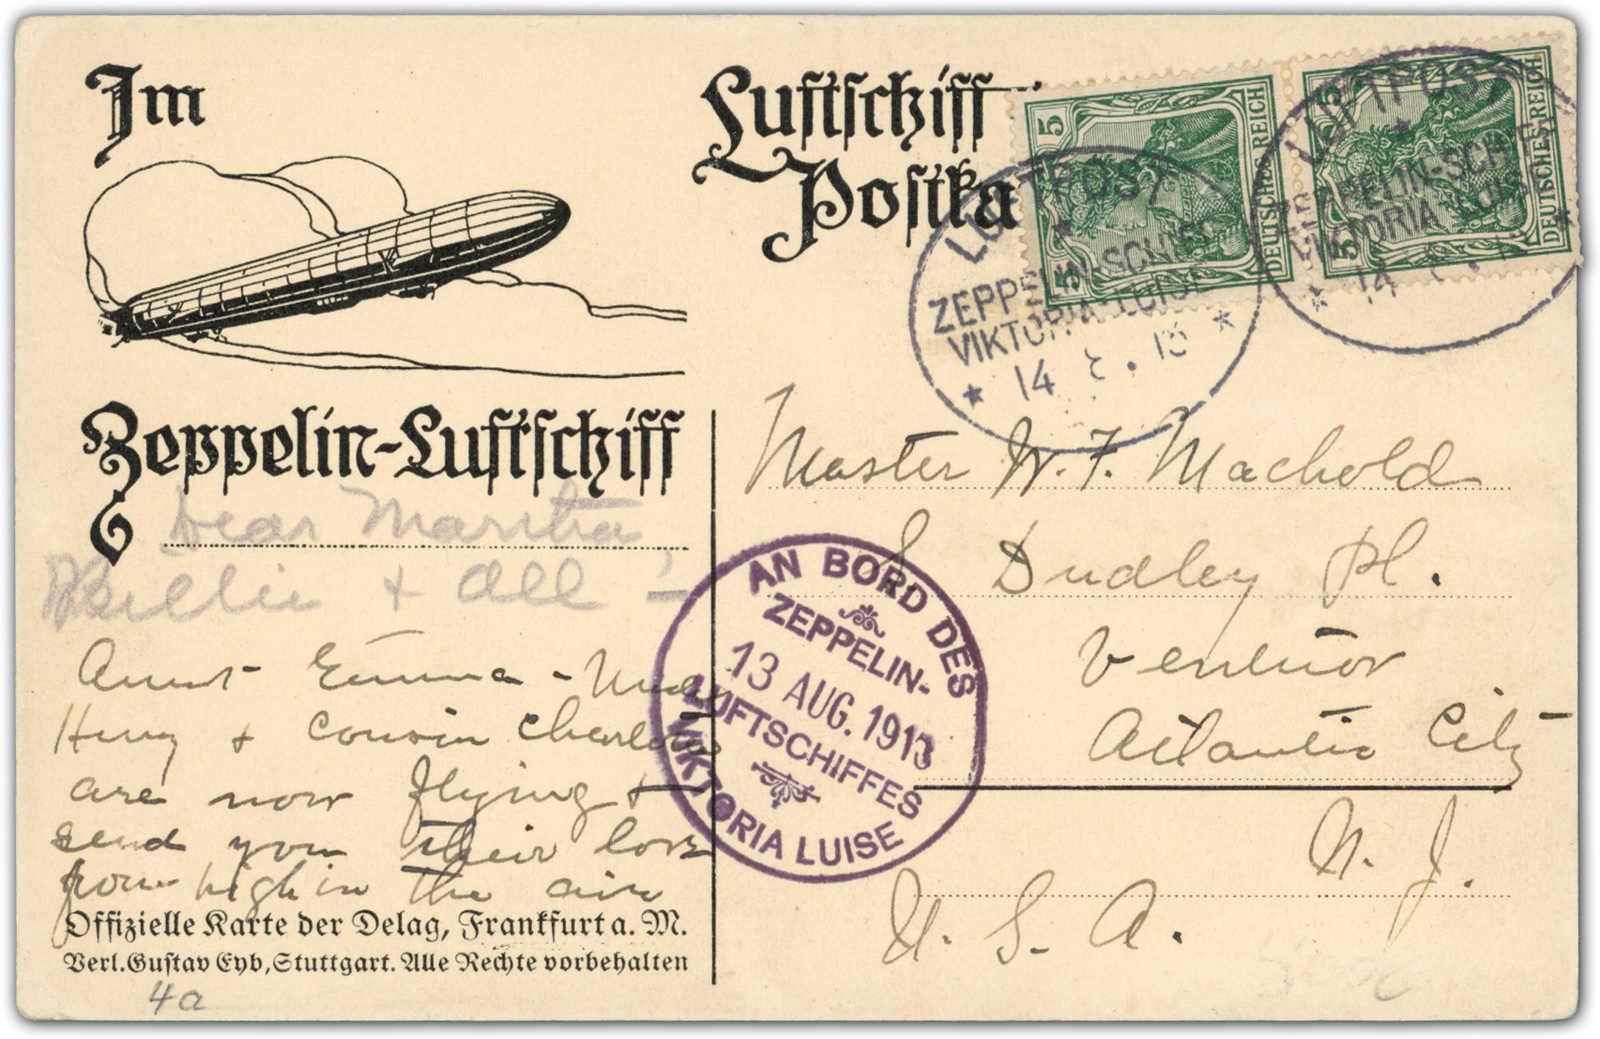 Im
Luftschiff
Postka
Zeppelin-Luftschiff
Dear Martha,
Billie + all –
Aunt Emma - Uncle
Henry + Cousin Charlotte
are now flying +
send you their love
from high in the air
Offizielle Karte der Delag, Frankfurt a. M.
Verl. Gustav Eyb, Stuttgart. Alle Rechte vorbehalten
4a
5 5 DEUTSCHES REICH
5 5 DEUTSCHES REICH
LUFTPOST
ZEPPELIN-SCHIFF
VIKTORIA LUISE
14 8. 13
LUFTPOST
ZEPPELIN-SCHIFF
VIKTORIA LUISE
14
Master W. F. Machold
8 Dudley Pl.
Ventnor
Atlantic City
N. J.
U. S. A.
AN BORD DES
ZEPPELIN-
13 AUG. 1913
LUFTSCHIFFES
VIKTORIA LUISE